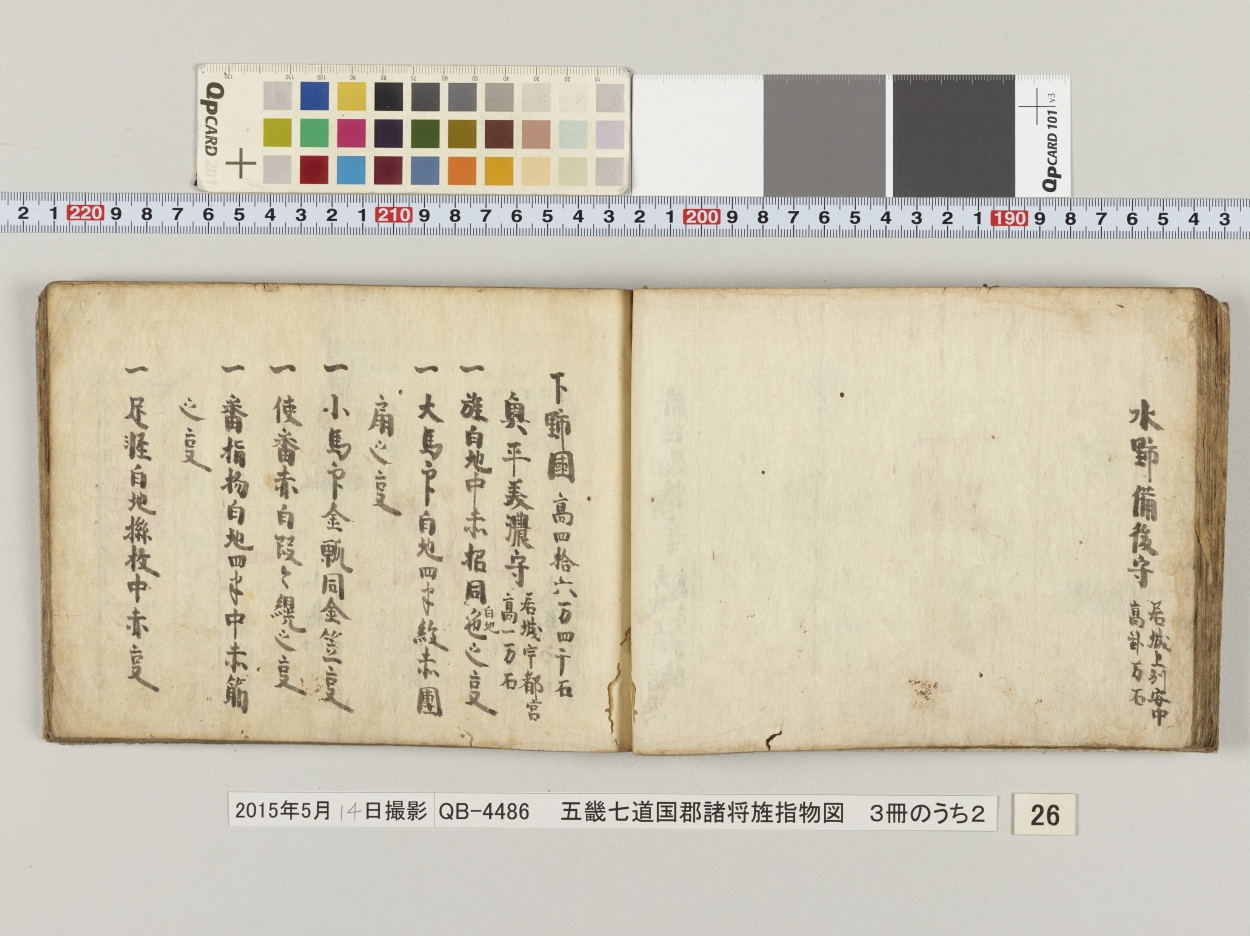 QPCARD 201
QPCARD 101 v3
2 1 220 9 8 7 6 5 4 3 2 1 210 9 8 7 6 5 4 3 2 1 200 9 8 7 6 5 4 3 2 1 190 9 8 7 6 5 4 3
水野備後守
居城上州安中
高弐万石
下野國 高四拾六万四千石
奥平美濃守
居城宇都宮
高一万石
一 旌白地中赤招同色之㕝
白地
一 大馬印白地四半紋赤團
扇之㕝
一 小馬印金瓢同金笠㕝
一 使番赤白段々縨之㕝
一 番指物白地四半中赤筋
之㕝
一 足軽白地 枚中赤㕝
2015年5月14日撮影 QB-4486 五畿七道国郡諸将旌指物図 3冊のうち2
26